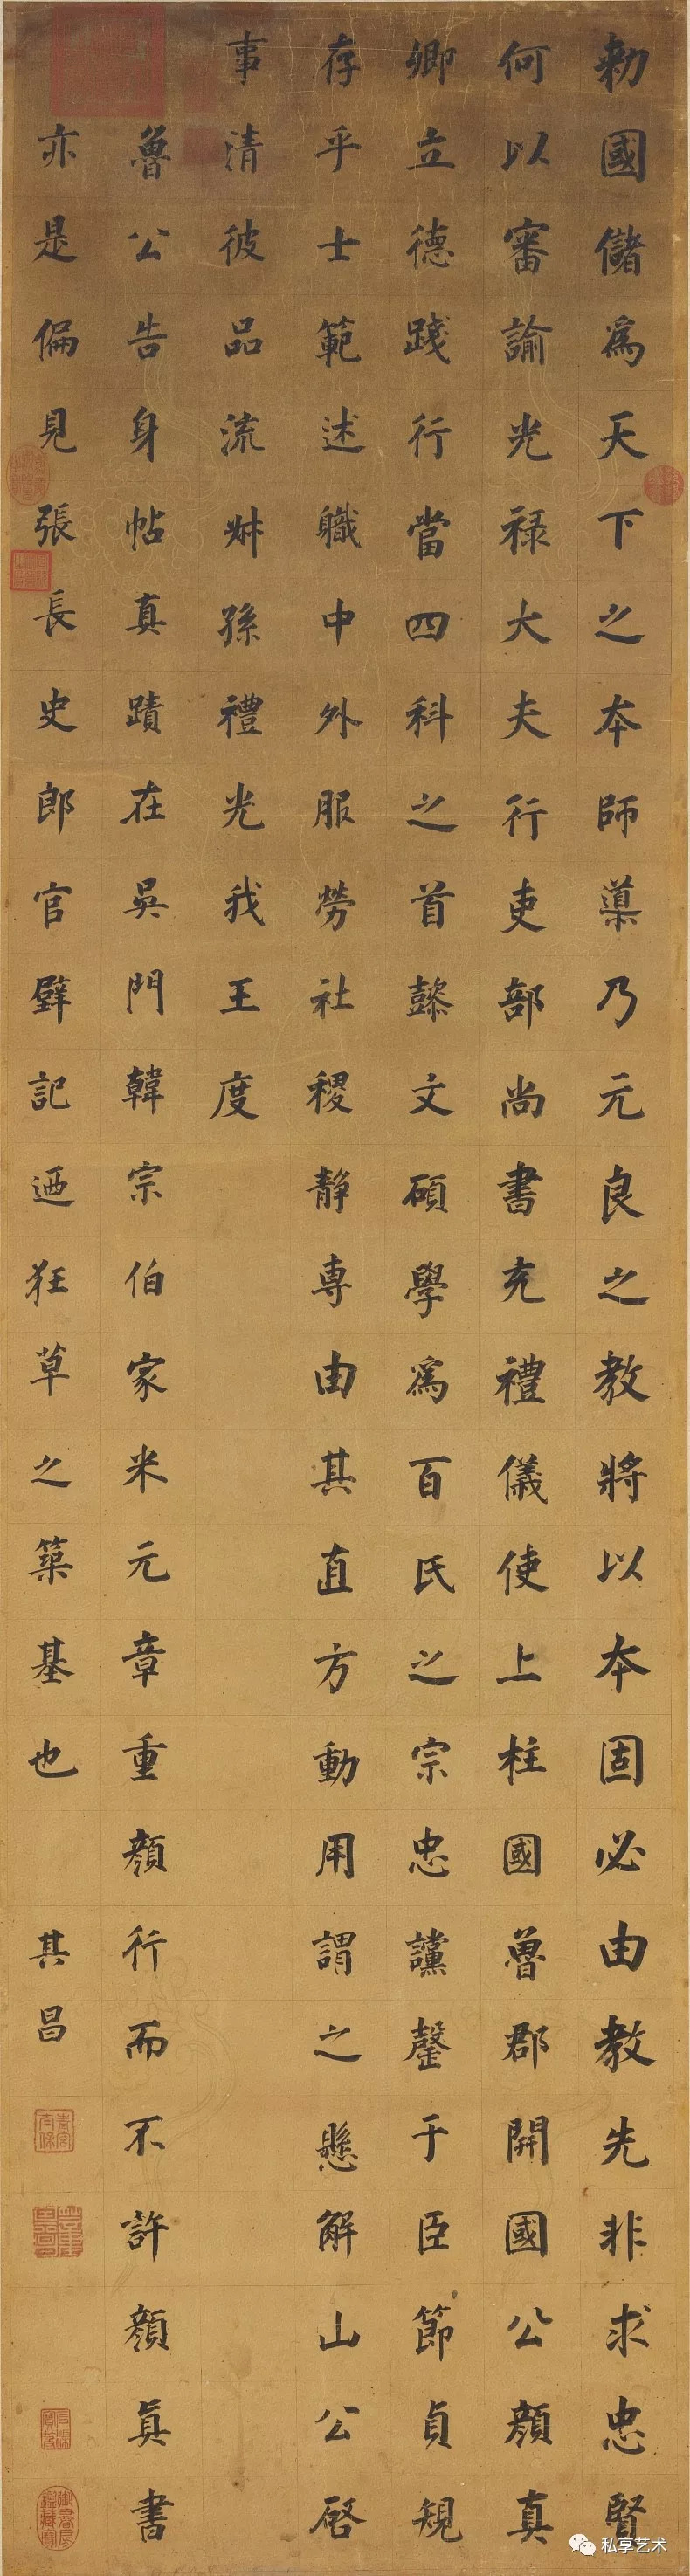 勅國儲為天下之本師導乃元良之教將以本固必由教先非求忠賢
何以審諭光祿大夫行吏部尚書充禮儀使上柱國魯郡開國公顏真
卿立德踐行當四科之首懿文碩學為百氏之宗忠讜罄于臣節貞規
存乎士範述職中外服勞社稷静専由其直方動用謂之懸解山公啓
事清彼品流叔孫禮光我王度
魯公告身帖真蹟在吳門韓宗伯家米元章重顏行而不許顏眞書
亦是偏見張長史郎官壁記迺狂草之築基也 其昌
私享艺术